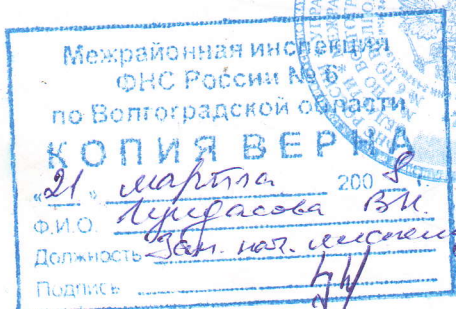 Межрайонная инспекция
ФНС России № 6
по Волгоградской области
КОПИЯ ВЕРНА
„21„ марта 200 г.
Ф.И.О. В.И.
Должность Зам. нач.
Подпись